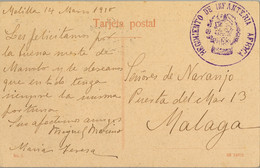 Melilla 14 Marzo 1910
Tarjeta postal
REGIMIENTO DE INFANTERIA AFRICA
Les felicitamos por
la buena suerte de
Manolo y le deseamos
que en todo tenga
siempre la misma
fortuna
Sus afectísimos amigos
Miguel Moreno
María Teresa
Señores de Naranjo
Puerta del Mar 13
Malaga